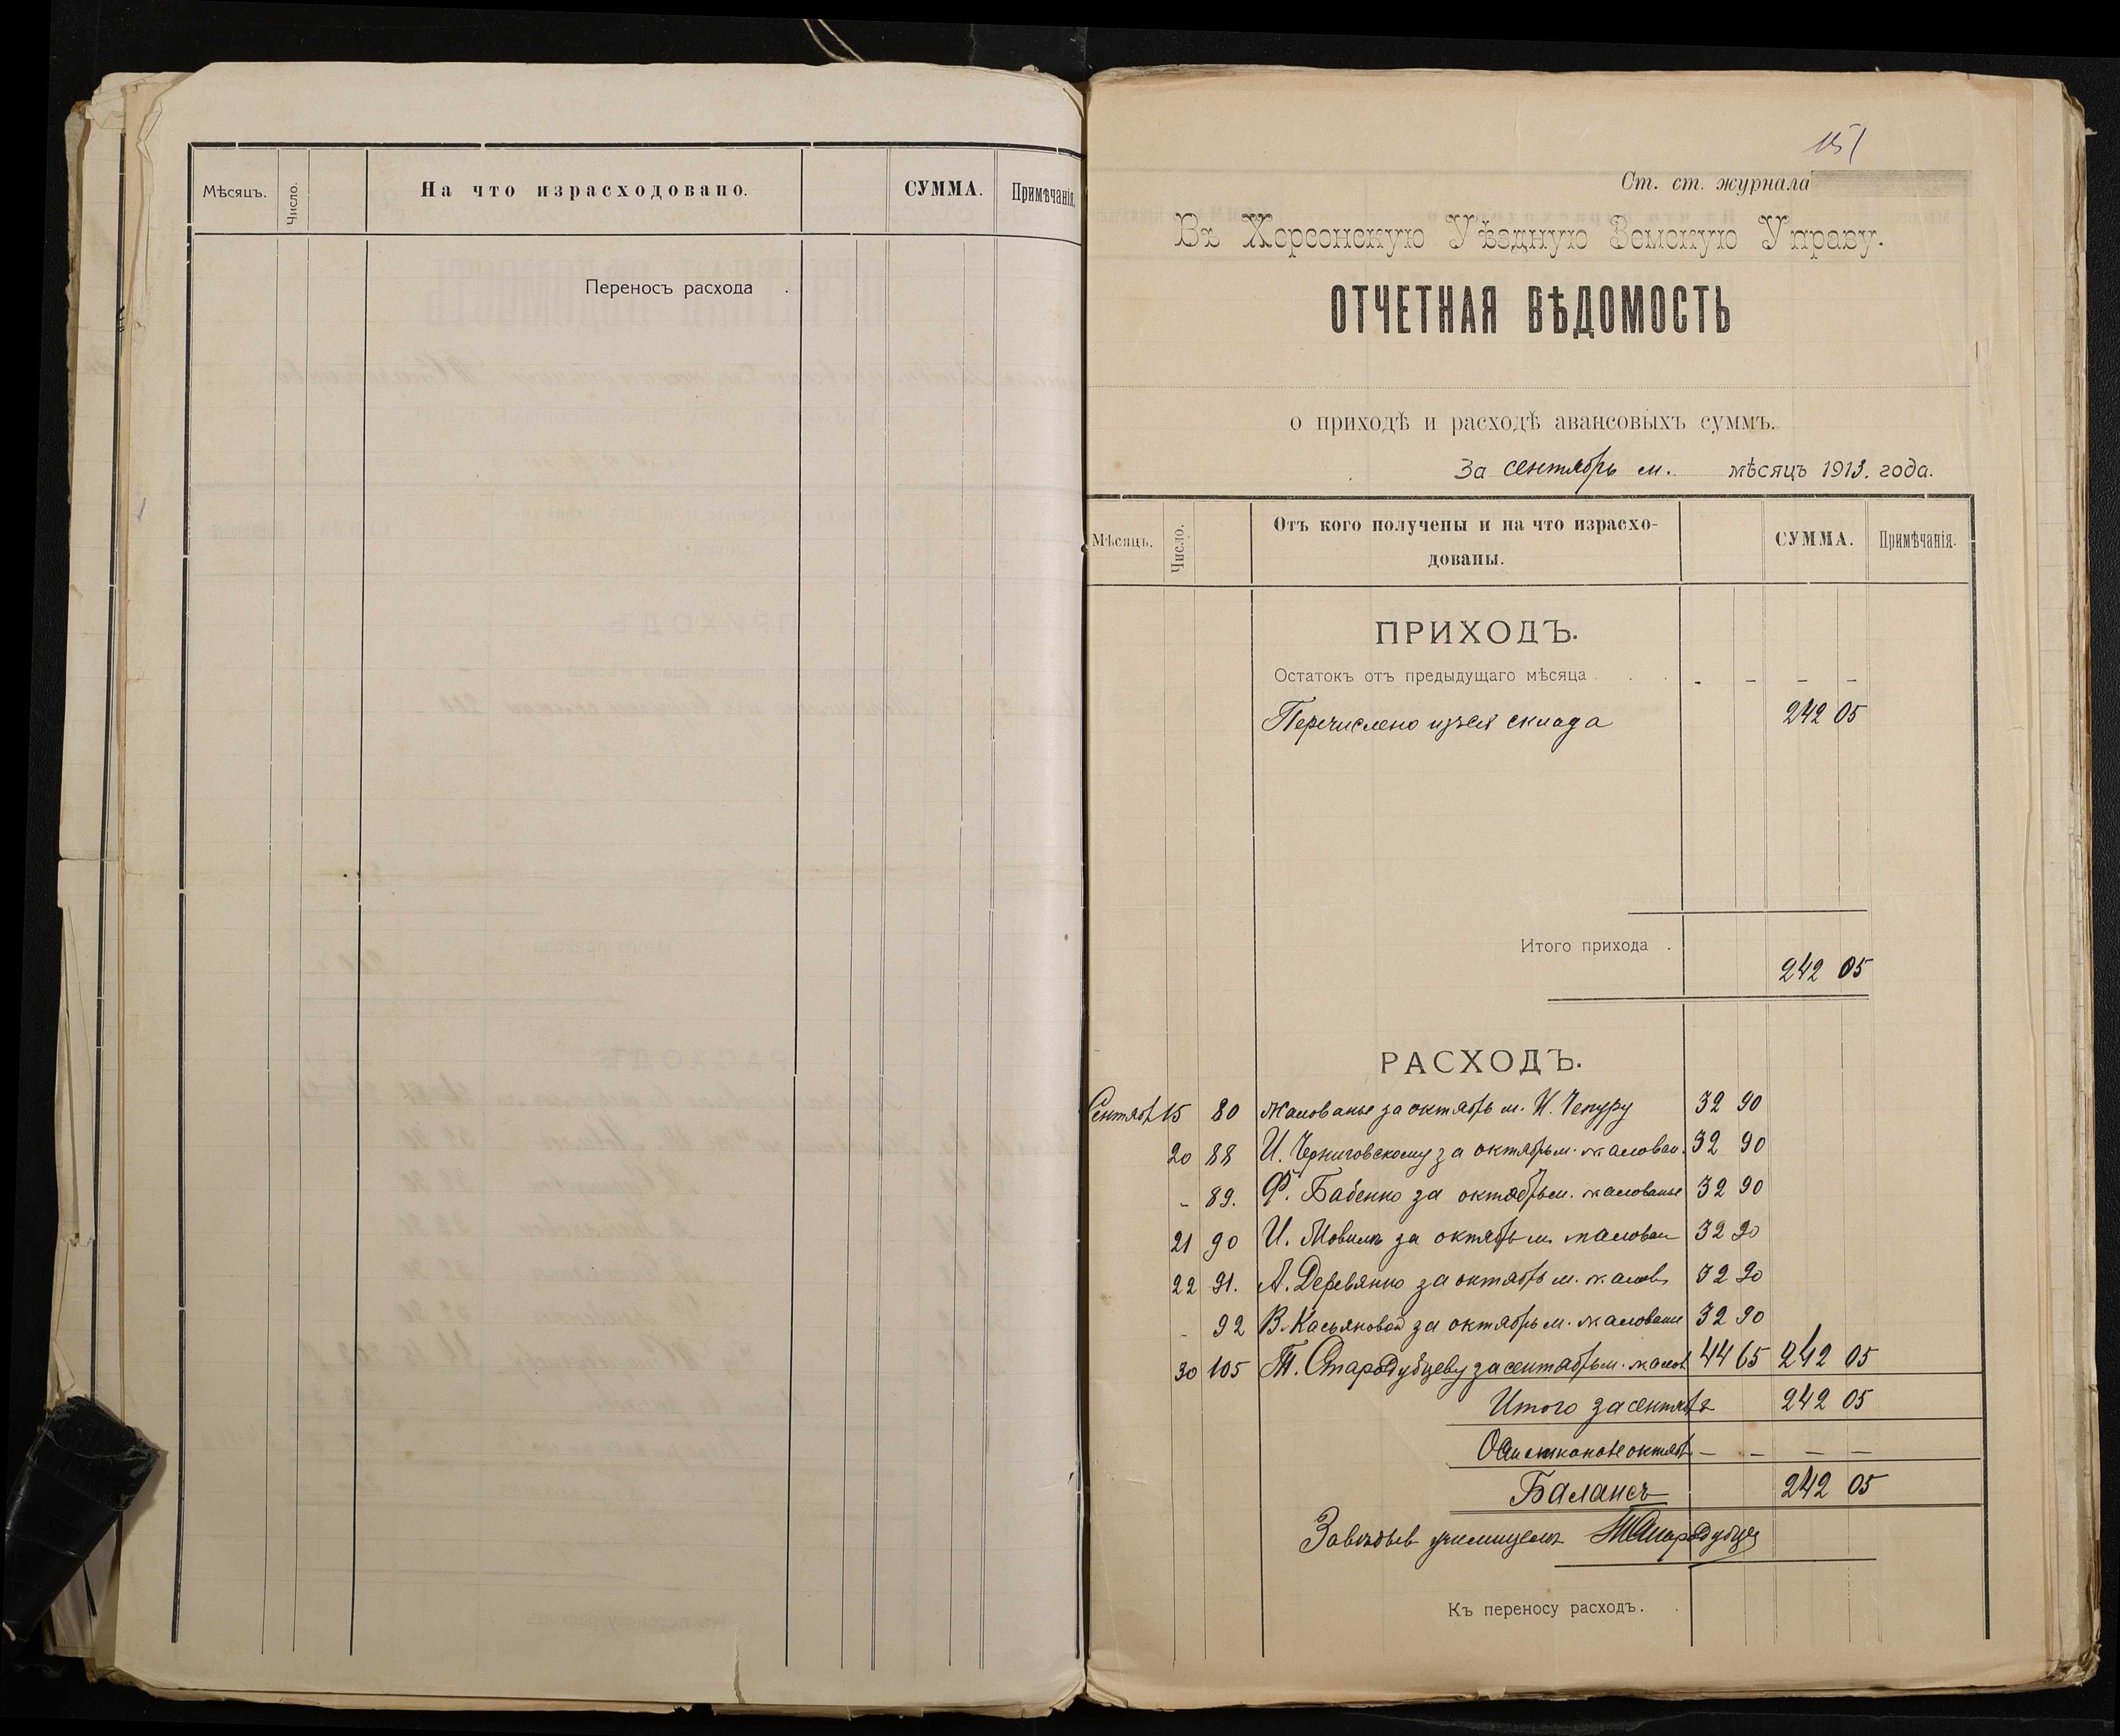 Мѣсяцъ.
Число.
На что израсходовано.
СУММА.
Примѣчанія.
Переносъ расхода .
151
Ст. ст. журнала
Въ Херсонскую Уѣздную Земскую Управу.
ОТЧЕТНАЯ ВѢДОМОСТЬ
о приходѣ и расходѣ авансовыхъ суммъ.
За сентябрь м. мѣсяцъ 1913. года.
Мѣсяцъ.
Число.
Отъ кого получены и на что израсхо-
дованы.
СУММА.
Примѣчанія.
ПРИХОДЪ.
Остатокъ отъ предыдущаго мѣсяца . . . - - - -
Перечислено склада 242 05
Итого прихода .
242 05
РАСХОДЪ.
Сентябр 15 80 жалованье за октябрь м. И. Чепуру 32 90
20 88 И. Черниговскому за октябрь м. жалован. 32 90
- 89. Ф. Бабенко за октябрь м. жалованье 32 90
21 90 И. за октябрь м. жалован 32 90
22 91. А. Деревянко за октябрь м. жалов 32 90
- 92 В. Касьяновой за октябрь м. жалованье 32 90
30 105 Т. Стародубцеву за сентябрь м. жалов 44 65 242 05
Итого за сентябр 242 05
октябр - - - -
Балансъ 242 05
училищемъ Стародубце
Къ переносу расходъ. .